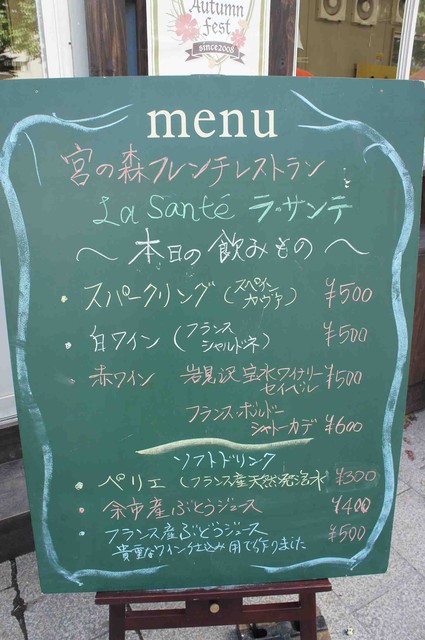 Autumn
fest
since2008
menu
宮の森フレンチレストラン
La Santé ラ・サンテ
〜本日の飲みもの〜
・スパークリング(スペイン カヴァ) ¥500
・白ワイン(フランス シャルドネ) ¥500
・赤ワイン 岩見沢宝水ワイナリー セイベル ¥500
フランス・ボルドー シャトーカデ ¥600
ソフトドリンク
・ペリエ(フランス産天然発泡水 ¥300
・余市産ぶどうジュース ¥400
・フランス産ぶどうジュース ¥500
貴重なワイン仕込み用で作りました